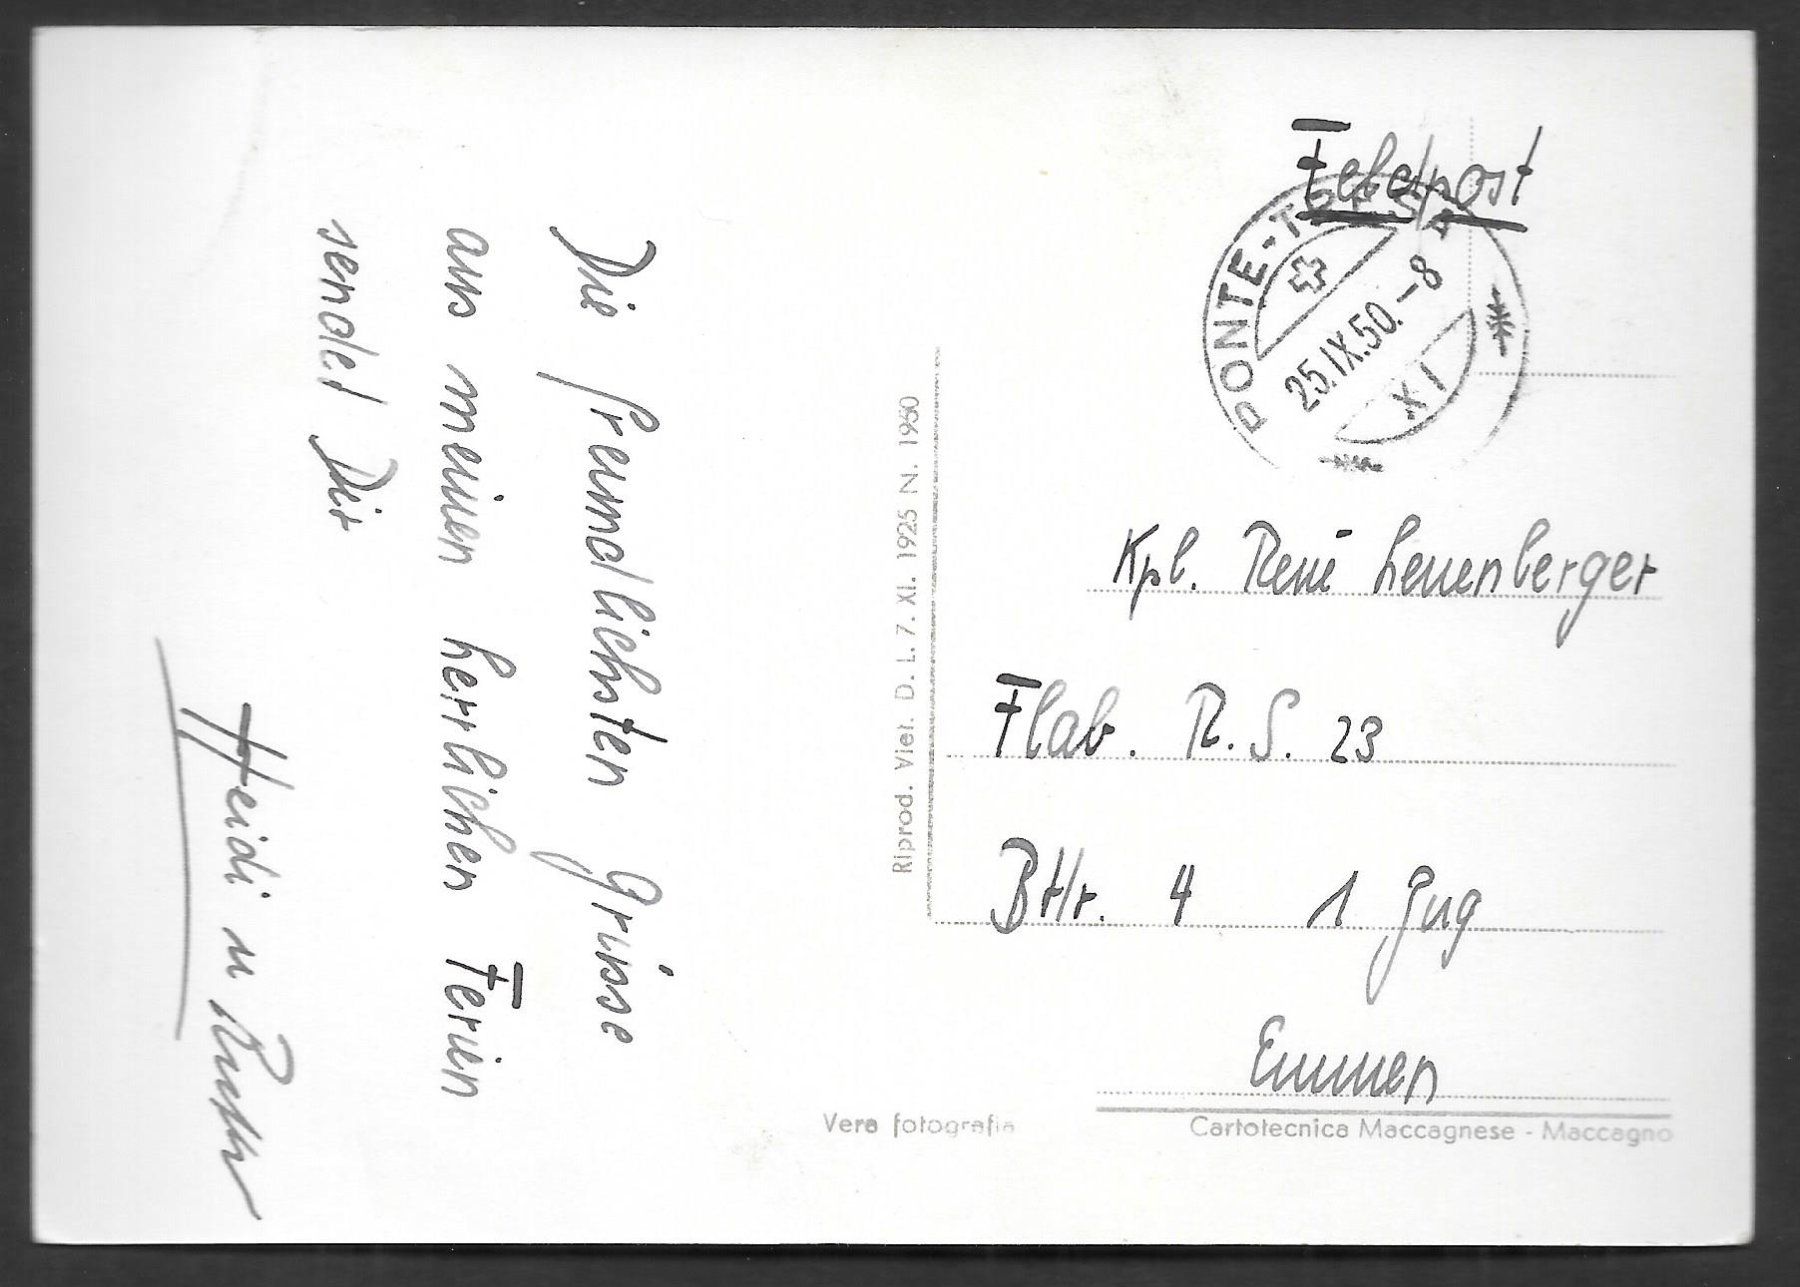 Die freundlichsten Grüsse
aus meinen herrlichen Ferien
sendet Dir
Heidi u Ruth
Riprod. Viet. D. L. 7. XI. 1925 N. 1950
Feldpost
PONTE-TRESA
25.IX.50.-8
XI
Kpl. René Leuenberger
Flab. R. S. 23
Bttr. 4 1 Zug
Emmen
Vera fotografia
Cartotecnica Maccagnese - Maccagno